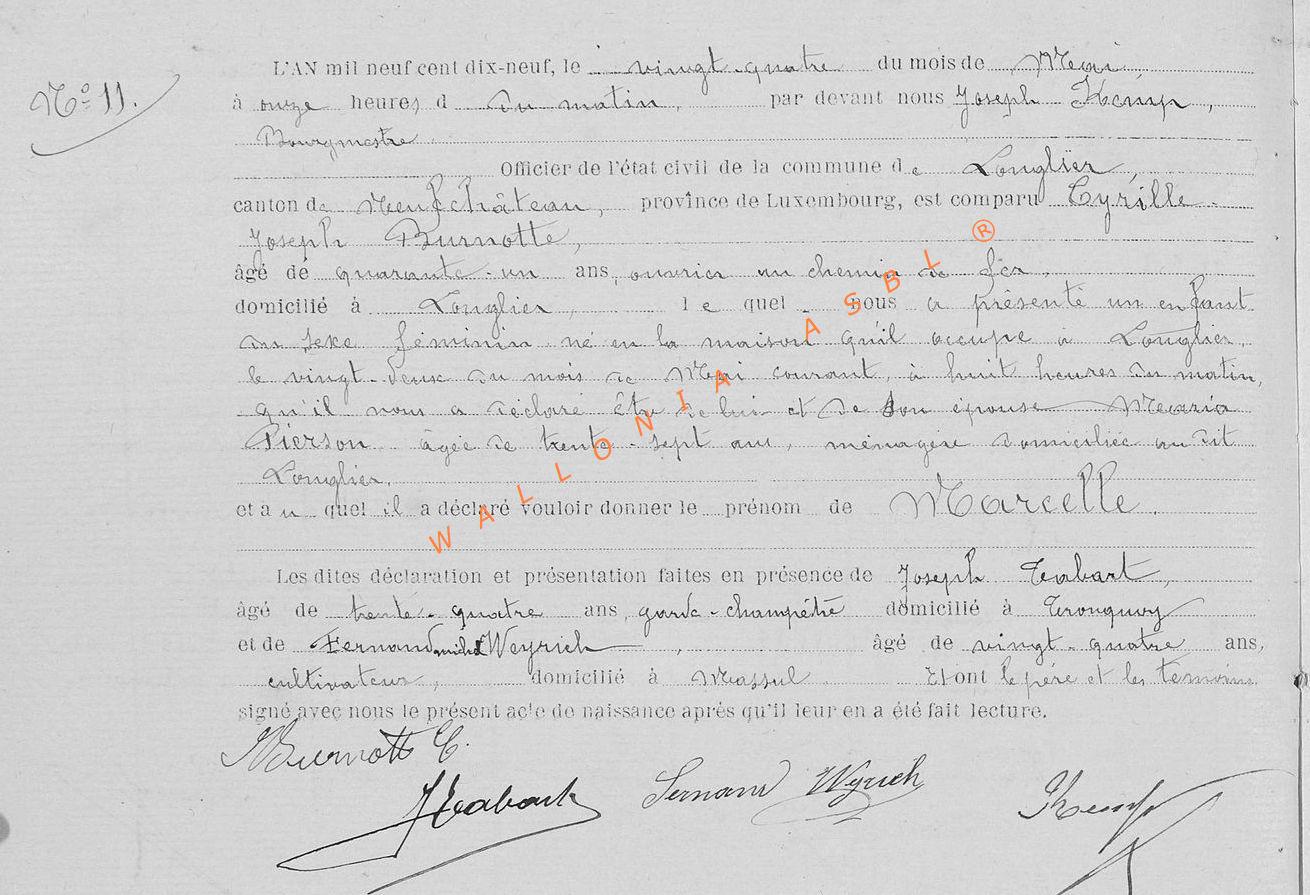 N° 11.
L'AN mil neuf cent dix-neuf, le vingt-quatre du mois de Mai,
à onze heures d du matin, par devant nous Joseph Kemp,
Bourgmestre
Officier de l'état civil de la commune de Longlier,
canton de Neufchâteau, province de Luxembourg, est comparu Cyrille
Joseph Burnotte,
âgé de quarante-un ans, ouvrier au chemin de fer,
domicilié à Longlier, le quel nous a présenté un enfant
du sexe féminin né en la maison qu'il occupe à Longlier,
le vingt-deux du mois de Mai courant, à huit heures du matin,
qu'il nous a déclaré être de lui et de son épouse Maria
Pierson âgée de trente-sept ans, ménagère domiciliée au dit
Longlier.
et au quel il a déclaré vouloir donner le prénom de Marcelle.
Les dites déclaration et présentation faites en présence de Joseph Tabart,
âgé de trente-quatre ans, garde-champêtre domicilié à Tronquoy
et de Fernand Michel Weyrich, âgé de vingt-quatre ans,
cultivateur, domicilié à Massul Et ont le père et les témoins
signé avec nous le présent acte de naissance après qu'il leur en a été fait lecture.
Burnotte C.
JTabart Fernand Weyrich Kemp
WALLONIA ASBL ®